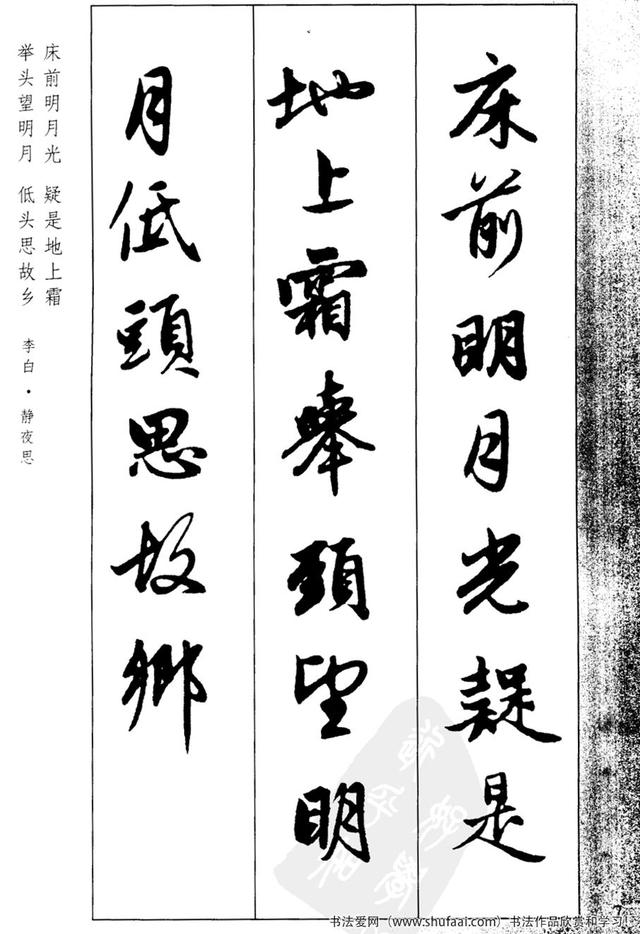 床前明月光疑是
地上霜舉頭望明
月低頭思故鄉
床前明月光 疑是地上霜
举头望明月 低头思故乡 李白·静夜思
7
书法爱网（www.shufaai.com）书法作品欣赏和学习！